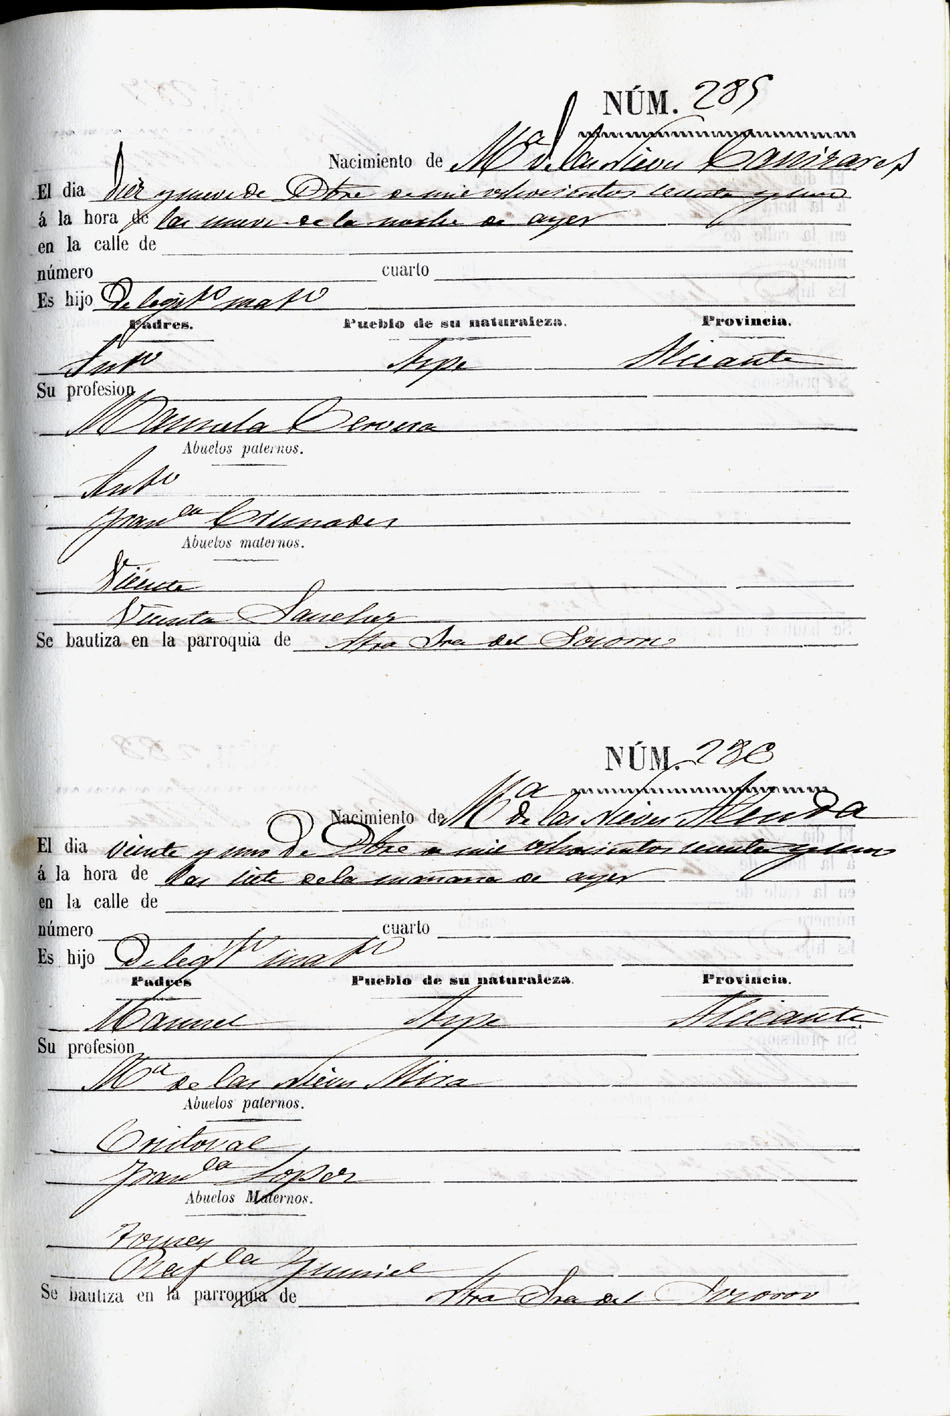 NÚM. 285
Nacimiento de Mª de las Nieves Cañizares
El dia diez y nueve de Dbre de mil ochocientos sesenta y uno
á la hora de las nueve de la noche de ayer
en la calle de
número cuarto
Es hijo de legitº matº
Padres. Pueblo de su naturaleza. Provincia.
Antº Aspe Alicante
Su profesion
Manuela Cervera
Abuelos paternos.
Antº
Franca
Abuelos maternos.
Vicente
Vicenta Sanchez
Se bautiza en la parroquia de Ntra Sra del Socorro
NÚM. 286
Nacimiento de Mª de las Nieves Alenda
El dia veinte y uno de Dbre de mil ochocientos sesenta y uno
á la hora de las siete de la mañana de ayer
en la calle de
número cuarto
Es hijo de legitº matº
Padres Pueblo de su naturaleza. Provincia.
Manuel Aspe Alicante
Su profesion
Mª de las Nieves Mira
Abuelos paternos.
Cristoval
Franca Lopez
Abuelos Maternos.
Rafla
Se bautiza en la parroquia de Ntra Sra del Socorro